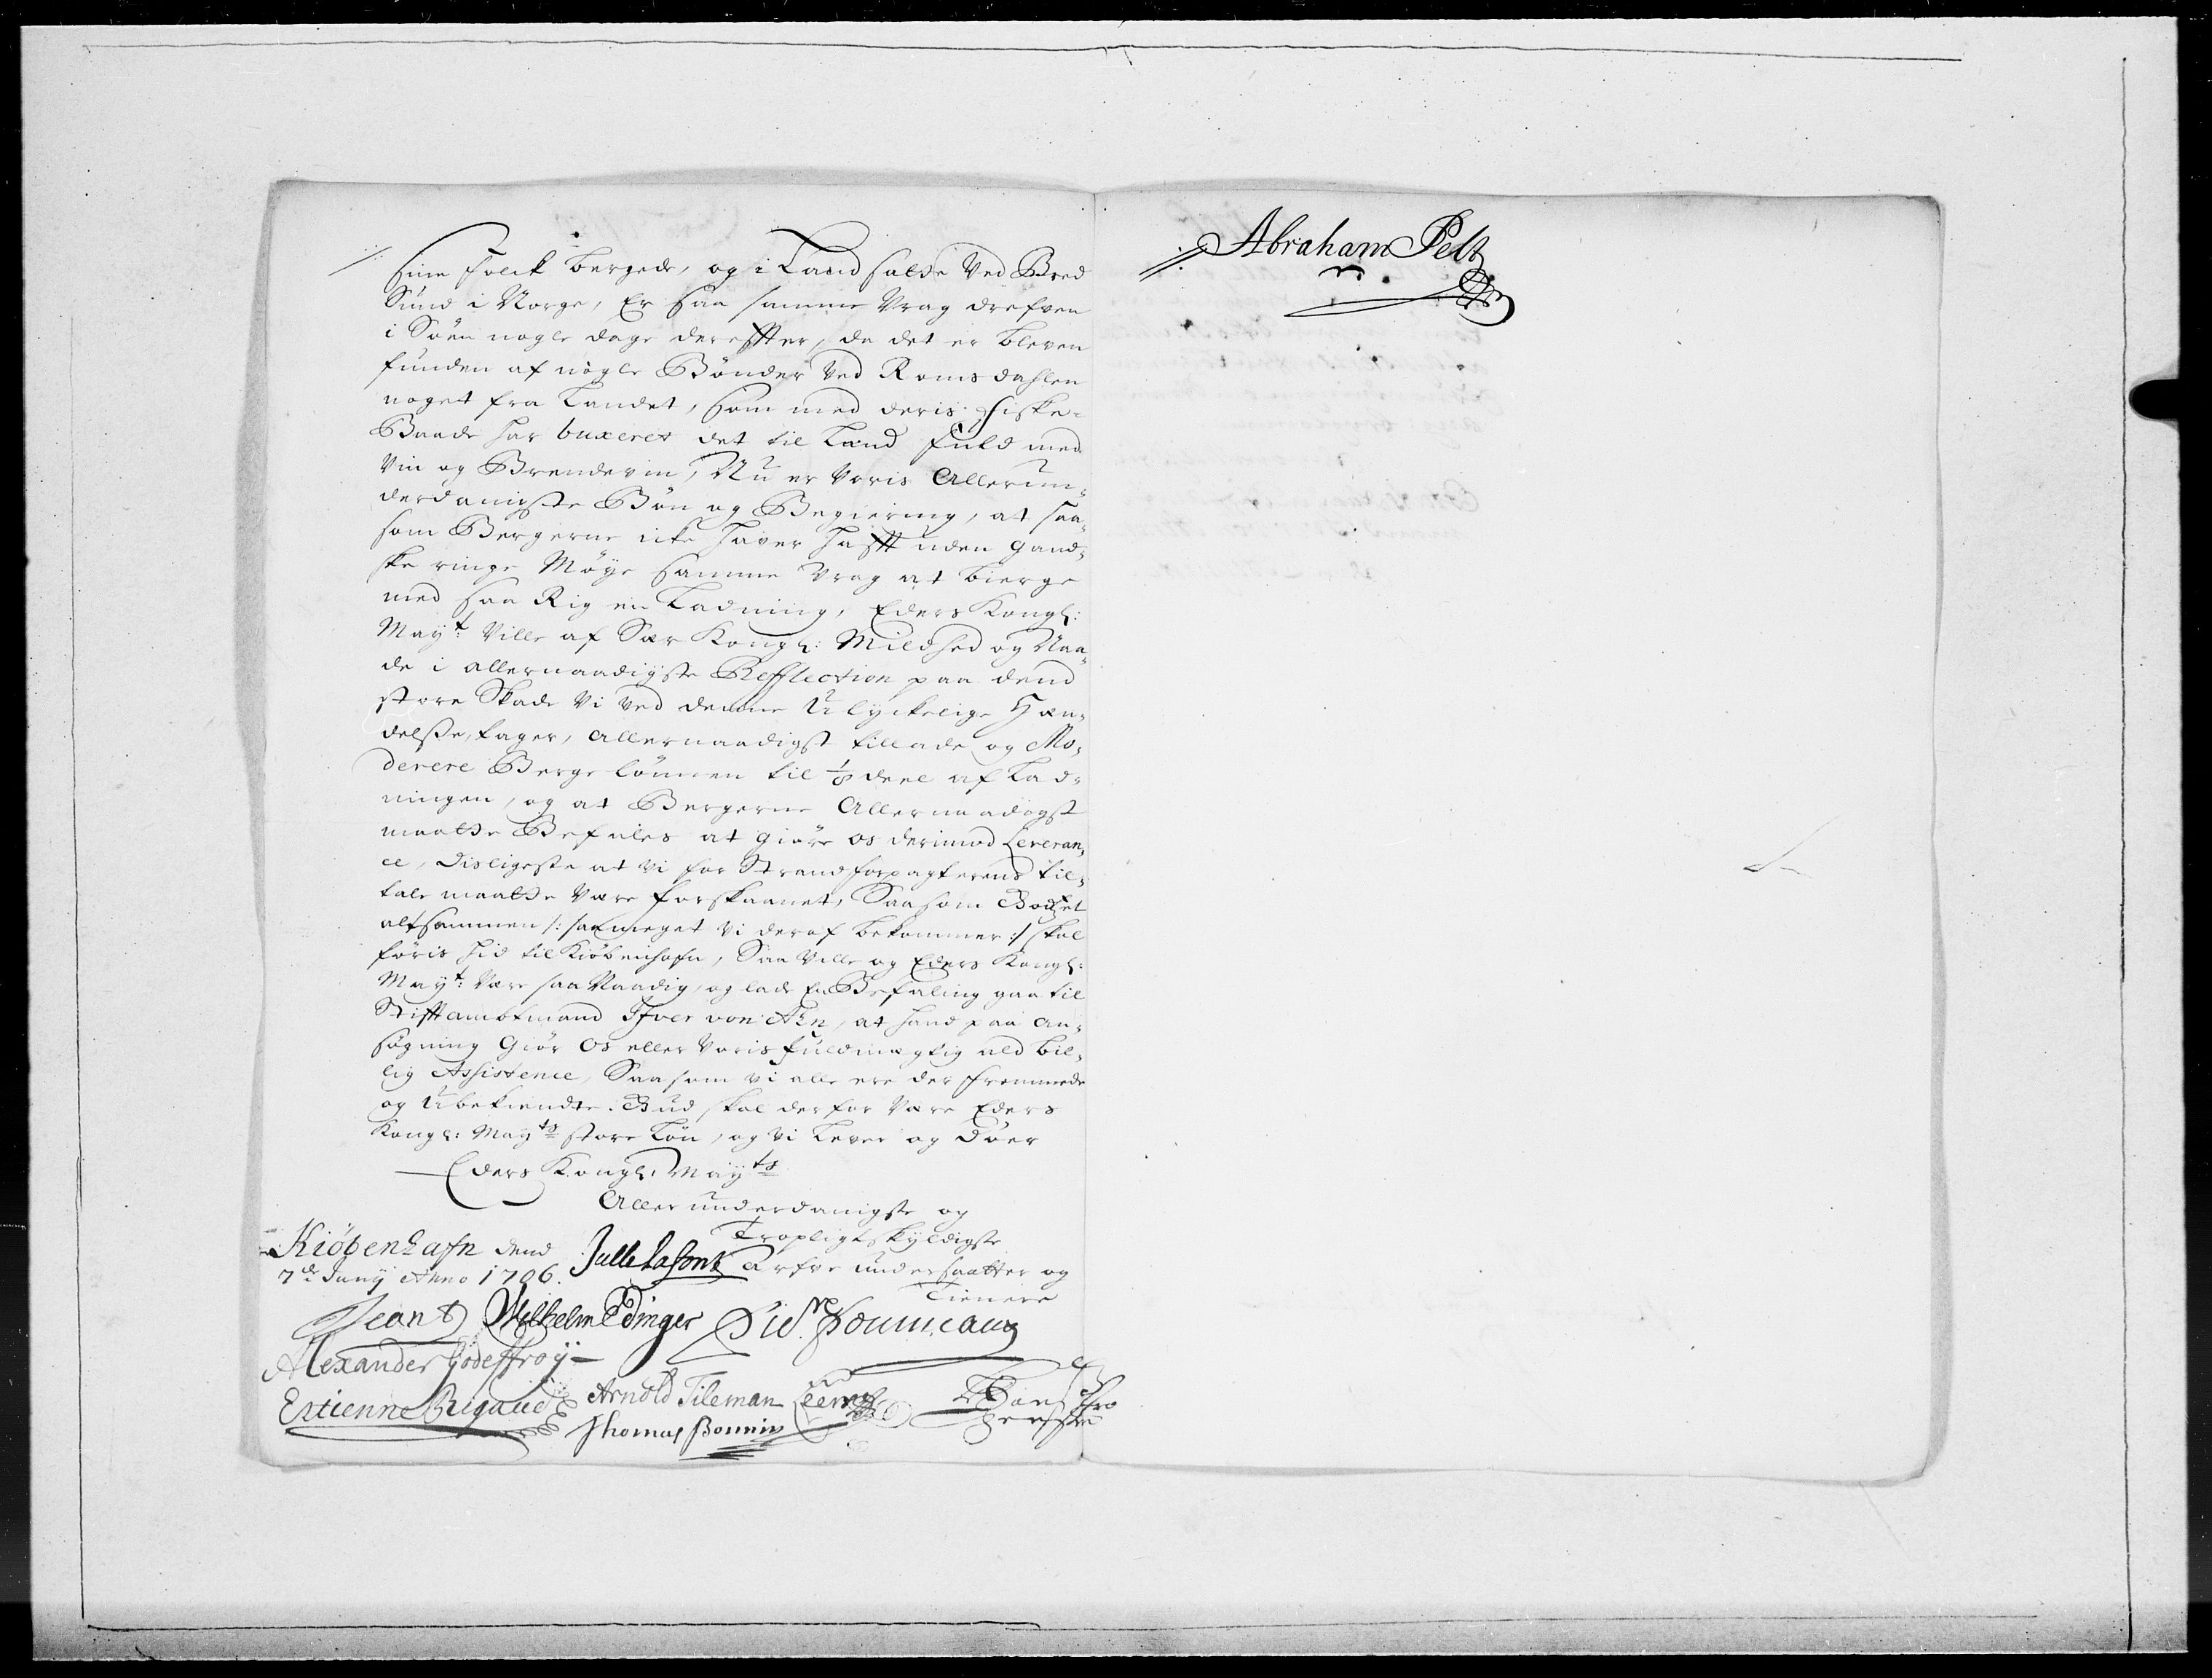 sine folck bergede, og i Land satte ved Bred
Sund i Norge, Er saa samme Vrag drefven
i Søen nogle dage derefter, da det er bleven
funden af nogle Bønder ved Romsdahlen
noget fra Landet, som med deris fiske-
Baade har buxeret det til Land fuld med
Vin og Brendevin, Nu er voris Allerun-
derdanigste Bøn og Begiering, at saa-
som Bergerne icke haver hafft uden gand-
ske ringe Møye samme Vrag at bierge
med saa Rig en Ladning, Eders Kongl:
Mayt: ville af Sær Kongl: Mildhed og Naa-
de i allernaadigste Refflection paa dend
store Skade vi ved denne Ulyckelige Hæn-
delsse, tager, allernaadigst tillade og Mo-
derere Bergelønnen til 1/8 deel af Lad-
ningen, og at Bergerne Allernaadigst
maatte Befales at giøre os derimod Leveran-
ce, Disligeste at vi for Strandforpagterens til-
tale maatte være forskaanet, Saasom Godset
altsammen /: saameget vi deraf bekommer :/ skal
føris hid til Kiøbenhafn, Saa ville og Eders Kongl:
Mayt: være saa Naadig, og lade En Befaling gaa til
Stifftambtmand Ifver von Ahn, at hand paa an-
søgning Giør Os eller voris fuldmægtig ald bil-
lig Assistence, Saasom vi alle ere der fremmede
og Ubekiendte. Gud skal derfor være Eders
Kongl: Mayts store Løn, og vi Lever og Døer
Eders Kongl: Mayts
Allerunderdanigste og
Tropligtskyldigste
Kiøbenhafn dend Julle Lafont Arfve undersaatter og
7de Junij Anno 1706. Tienere
Jean Wilhelm Edinger
Alexander Godeffroy
Estienne Rigaud Arnold Tileman
Thomas Bonnin
Abraham Pelt